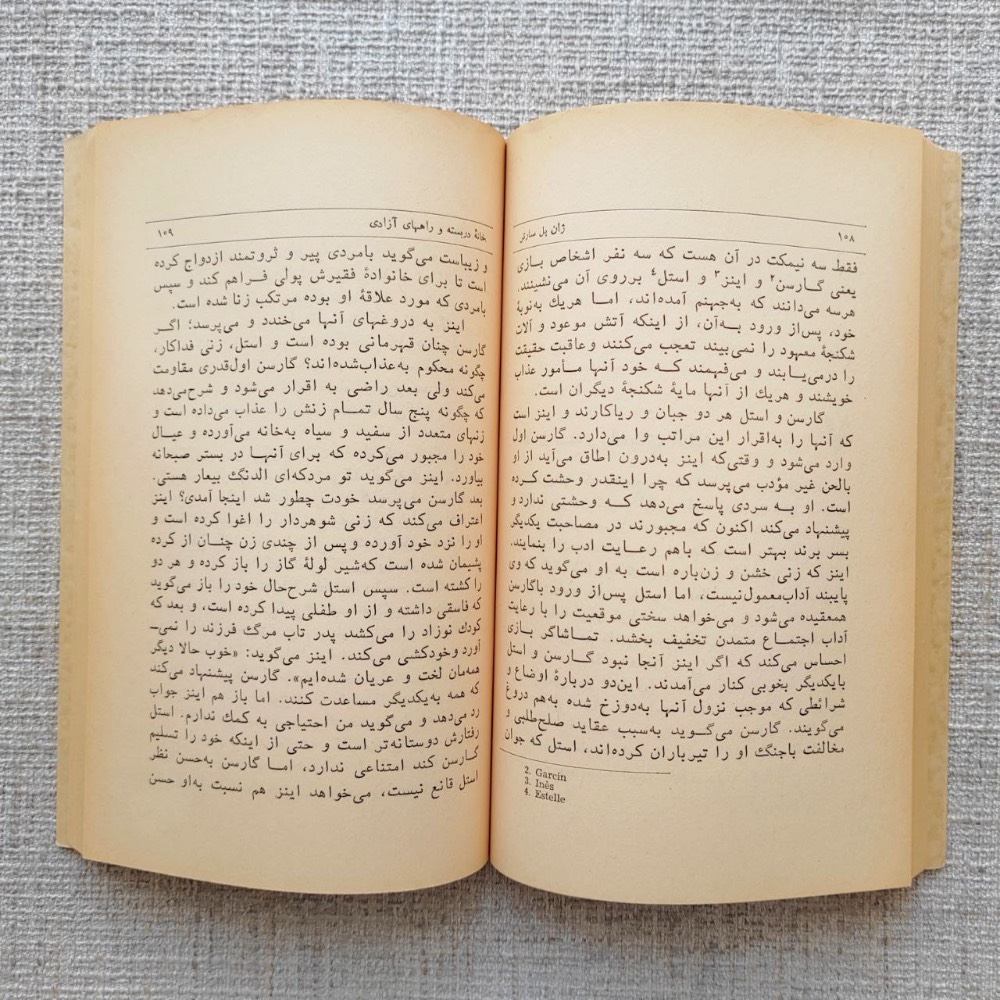 ۱۰۸
ژان پل سارتر
فقط سه نیمکت در آن هست که سه نفر اشخاص بازی
یعنی گارسن۲ و اینز۳ و استل۴ برروی آن می‌نشینند.
هرسه می‌دانند که به‌جهنم آمده‌اند، اما هریك به‌نوبهٔ
خود، پس‌از ورود به‌آن، از اینکه آتش موعود و آلات
شکنجهٔ معهود را نمی‌بیند تعجب می‌کنند و عاقبت حقیقت
را درمی‌یابند و می‌فهمند که خود آنها مأمور عذاب
خویشند و هریك از آنها مایهٔ شکنجهٔ دیگران است.
گارسن و استل هر دو جبان و ریاکارند و اینز است
که آنها را به‌اقرار این مراتب وا می‌دارد. گارسن اول
وارد می‌شود و وقتی‌که اینز به‌درون اطاق می‌آید از او
بالحن غیر مؤدب می‌پرسد که چرا اینقدر وحشت کرده
است. او به سردی پاسخ می‌دهد که وحشتی ندارد و
پیشنهاد می‌کند اکنون که مجبورند در مصاحبت یکدیگر
بسر برند بهتر است که باهم رعایت ادب را بنمایند.
اینز که زنی خشن و زن‌باره است به او می‌گوید که وی
پایبند آداب‌معمول‌نیست، اما استل پس‌از ورود باگارسن
همعقیده می‌شود و می‌خواهد سختی موقعیت را با رعایت
آداب اجتماع متمدن تخفیف بخشد. تماشاگر بازی
احساس می‌کند که اگر اینز آنجا نبود گارسن و استل
بایکدیگر بخوبی کنار می‌آمدند. این‌دو دربارهٔ اوضاع و
شرائطی که موجب نزول آنها به‌دوزخ شده به‌هم دروغ
می‌گویند. گارسن می‌گوید به‌سبب عقاید صلح‌طلبی و
مخالفت باجنگ او را تیرباران کرده‌اند، استل که جوان
2. Garcin
3. Inès
4. Estelle
خانهٔ دربسته و راههای آزادی
۱۰۹
و زیباست می‌گوید بامردی پیر و ثروتمند ازدواج کرده
است تا برای خانوادهٔ فقیرش پولی فراهم کند و سپس
بامردی که مورد علاقهٔ او بوده مرتکب زنا شده است.
اینز به دروغهای آنها می‌خندد و می‌پرسد؛ اگر
گارسن چنان قهرمانی بوده است و استل، زنی فداکار،
چگونه محکوم به‌عذاب‌شده‌اند؟ گارسن اول‌قدری مقاومت
می‌کند ولی بعد راضی به اقرار می‌شود و شرح‌می‌دهد
که چگونه پنج سال تمام زنش را عذاب می‌داده است و
زنهای متعدد از سفید و سیاه به‌خانه می‌آورده و عیال
خود را مجبور می‌کرده که برای آنها در بستر صبحانه
بیاورد. اینز می‌گوید تو مردکه‌ای الدنگ بیعار هستی.
بعد گارسن می‌پرسد خودت چطور شد اینجا آمدی؟ اینز
اعتراف می‌کند که زنی شوهردار را اغوا کرده است و
او را نزد خود آورده و پس از چندی زن چنان از کرده
پشیمان شده است که‌شیر لولهٔ گاز را باز کرده و هر دو
را کشته است. سپس استل شرح‌حال خود را باز می‌گوید
که فاسقی داشته و از او طفلی پیدا کرده است، و بعد که
کودك نوزاد را می‌کشد پدر تاب مرگ فرزند را نمی‌ـ
آورد وخودکشی می‌کند. اینز می‌گوید: «خوب حالا دیگر
همه‌مان لخت و عریان شده‌ایم». گارسن پیشنهاد می‌کند
که همه به‌یکدیگر مساعدت کنند. اما باز هم اینز جواب
رد می‌دهد و می‌گوید من احتیاجی به کمك ندارم. استل
رفتارش دوستانه‌تر است و حتی از اینکه خود را تسلیم
گارسن کند امتناعی ندارد، اما گارسن به‌حسن نظر
استل قانع نیست، می‌خواهد اینز هم نسبت به‌او حسن